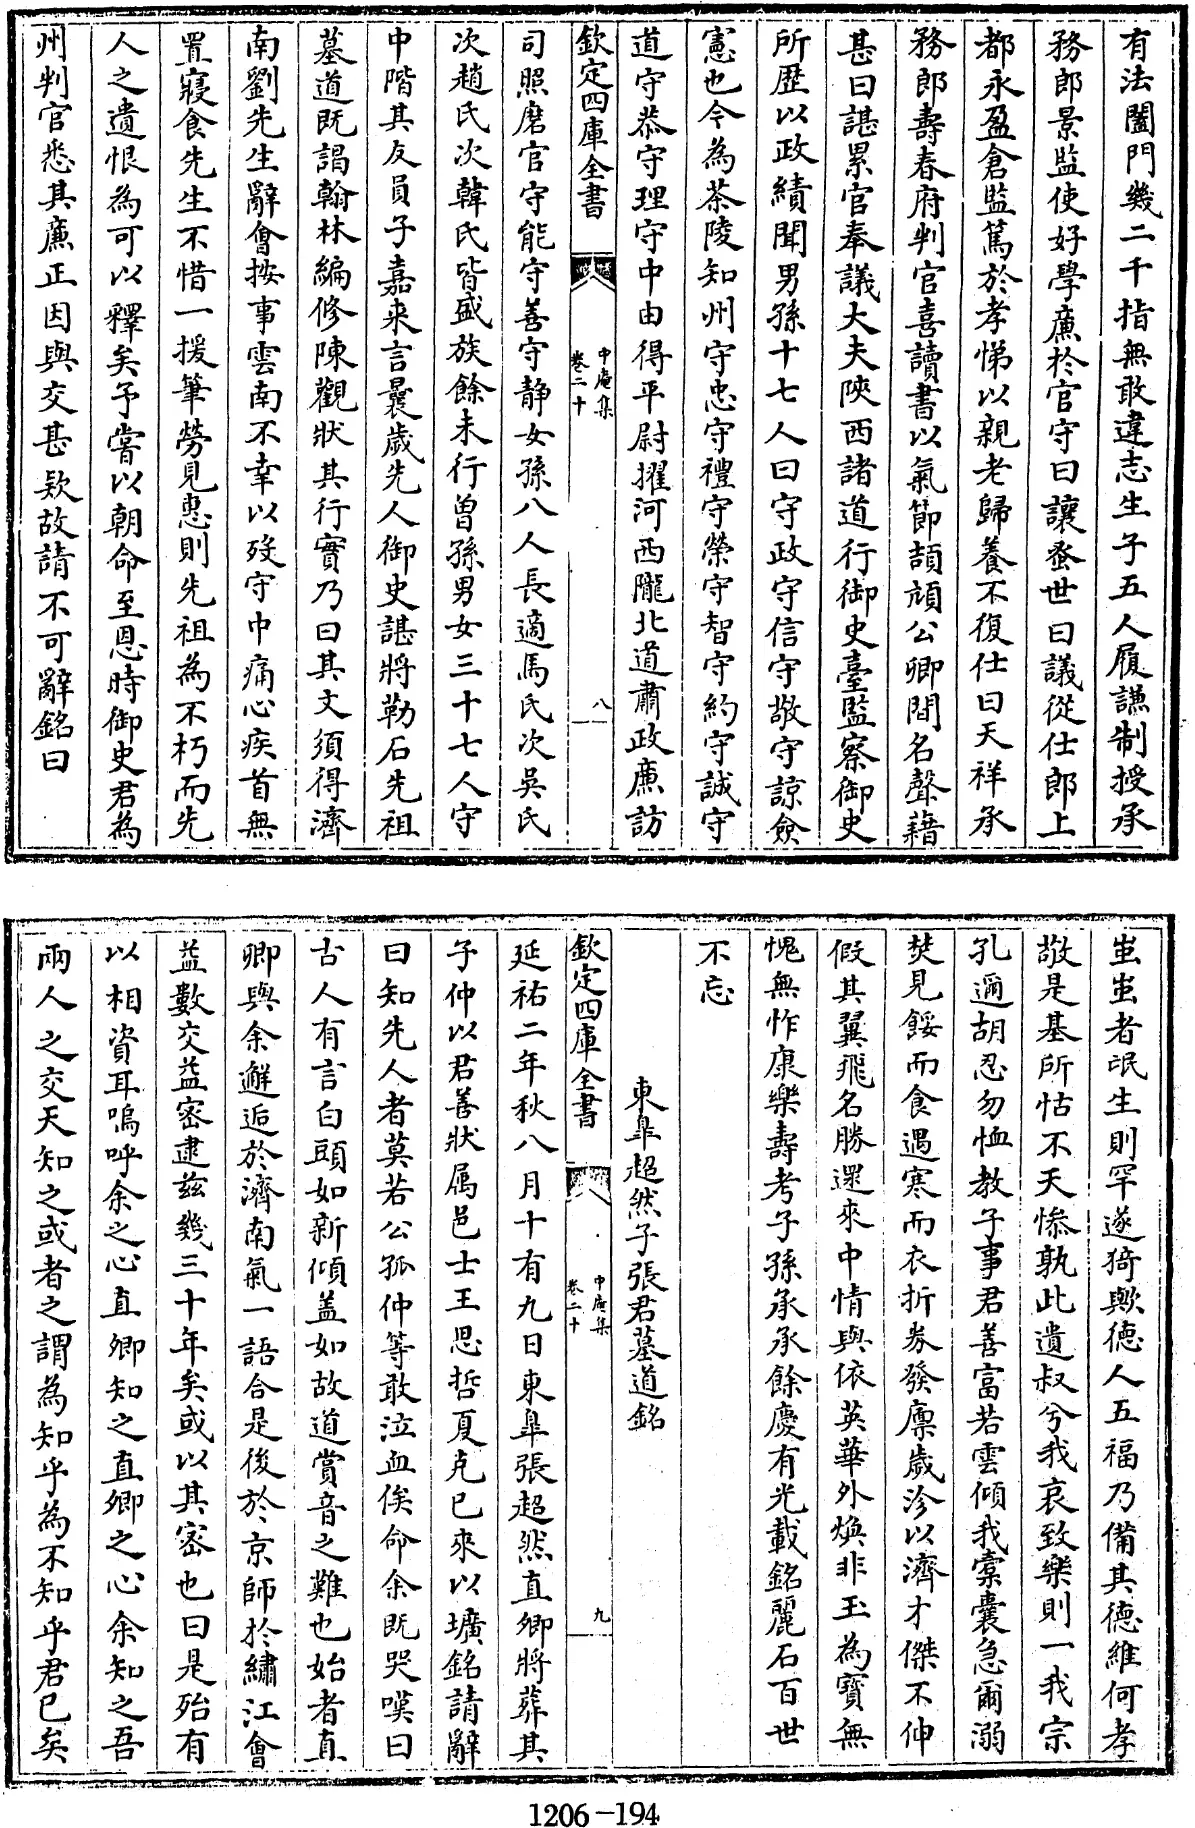 有法闔門幾二千指無敢違志生子五人履謙制授承
務郎景監使好學廉於官守曰讓蚤世曰議從仕郎上
都永盈倉監篤於孝悌以親老歸養不復仕曰天祥承
務郎壽春府判官喜讀書以氣節頡頏公卿間名聲藉
甚曰諶累官奉議大夫陜西諸道行御史臺監察御史
所歴以政績聞男孫十七人曰守政守信守敬守諒僉
憲也今為茶陵知州守忠守禮守榮守智守約守誠守
道守恭守理守中由得平尉擢河西隴北道肅政廉訪
欽定四庫全書
中庵集
卷二十
八
司照磨官守能守善守静女孫八人長適馬氏次吳氏
次趙氏次韓氏皆盛族餘未行曽孫男女三十七人守
中階其友員子嘉来言曩歲先人御史諶將勒石先祖
墓道既謁翰林編修陳觀狀其行實乃曰其文須得濟
南劉先生辭會按事雲南不幸以歿守中痛心疾首無
置寢食先生不惜一援筆勞見惠則先祖為不朽而先
人之遺恨為可以釋矣予嘗以朝命至恩時御史君為
州判官悉其廉正因與交甚欵故請不可辭銘曰
蚩蚩者氓生則罕遂猗歟德人五福乃備其德維何孝
敬是基所怙不天慘孰此遺叔兮我哀致樂則一我宗
孔邇胡忍勿恤教子事君善富若雲傾我槖囊急爾溺
焚見餒而食遇寒而衣折券發廪歲沴以濟才傑不伸
假其翼飛名勝遝來中情與依英華外煥非玉為寳無
愧無怍康樂壽考子孫承承餘慶有光載銘麗石百世
不忘
東臯超然子張君墓道銘
欽定四庫全書
中庵集
卷二十
九
延祐二年秋八月十有九日東臯張超然直卿將葬其
子仲以君善狀属邑士王思哲夏克已來以壙銘請辭
曰知先人者莫若公孤仲等敢泣血俟命余既哭嘆曰
古人有言白頭如新傾盖如故道賞音之難也始者直
卿與余邂逅於濟南氣一語合是後於京師於繡江會
益數交益密逮兹幾三十年矣或以其密也曰是殆有
以相資耳嗚呼余之心直卿知之直卿之心余知之吾
兩人之交天知之或者之謂為知乎為不知乎君已矣
1206-194